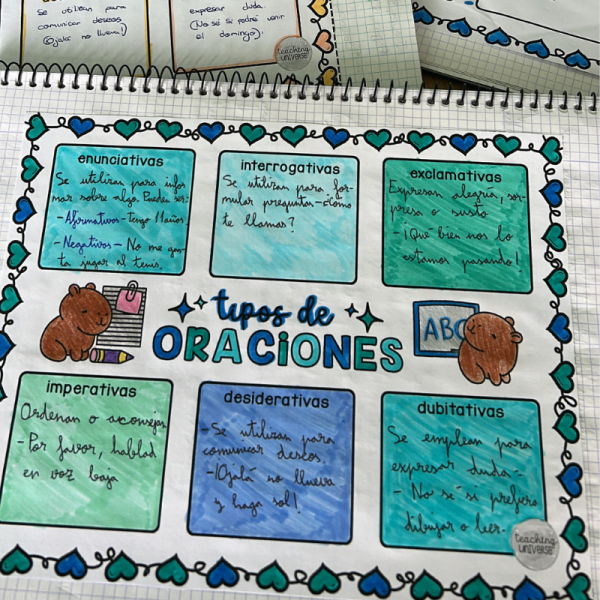 Se utilizan para
comunicar deseos
(Ojalá no llueva!)
expresar duda.
(No sé si podré venir
el domingo).
teaching
UNIVERSE
enunciativas
Se utilizan para infor
mar sobre algo. Pueden ser:
-Afirmativas-tengo 11 años
-Negativas- No me gus-
ta jugar al tenis.
interrogativas
Se utilizan para for-
mular preguntas-¿Cómo
te llamas?
exclamativas
Expresan alegría, sor-
presa o susto
-¡Qué bien nos lo
estamos pasando!
tipos de
ORACIONES
ABC
imperativas
Ordenan o aconsejan
-Por favor, hablad
en voz baja
desiderativas
-Se utilizan para
comunicar deseos.
-¡Ojalá no llueva
y haga sol!
dubitativas
Se emplean para
expresar duda-
- No sé si prefiero
dibujar o leer-
teaching
UNIVERSE